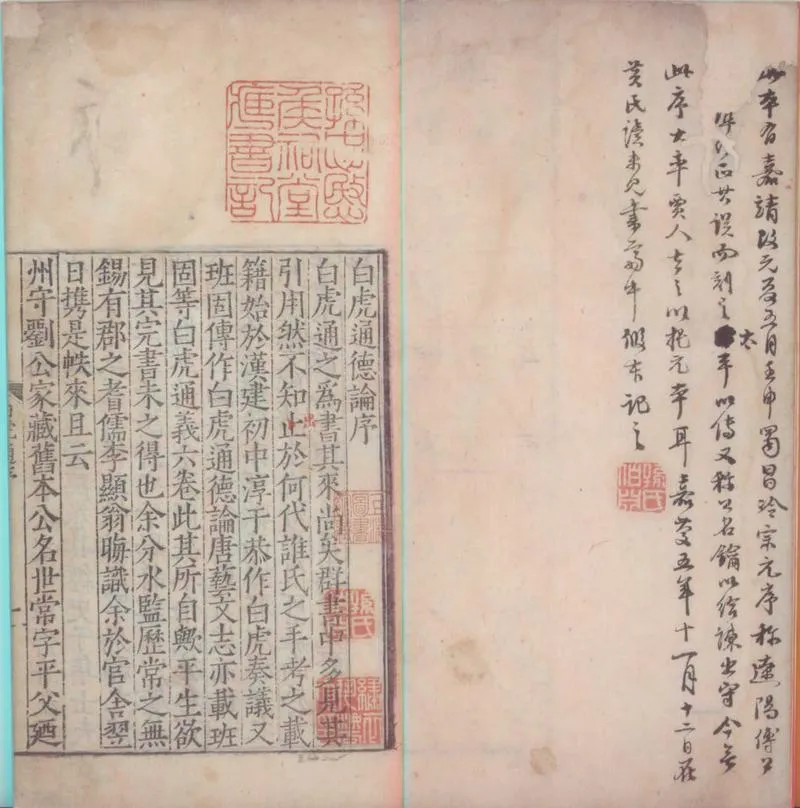 此本有嘉靖改元夏五月壬申蜀昌泠宗元序称遼陽傅公
正其误而刻之太平以傳又称公名鑰以给諫出守今無
此序大率賈人去之以托元本耳嘉慶五年十一月十二日在
黄氏讀未見書齋中假本記之
孫忠愍
侯祠堂
藏書記
白虎通德論序
白虎通之為書其來尚矣群書中多見其
引用然不知止於何代誰氏之手考之載
出
籍始於漢建初中淳于恭作白虎奏議又
班固傳作白虎通德論唐藝文志亦載班
固等白虎通義六卷此其所自歟平生欲
見其完書未之得也余分水監歷常之無
錫有郡之耆儒李顯翁晦識余於官舍翌
日攜是帙來且云
州守劉公家藏舊本公名世常字平父廼